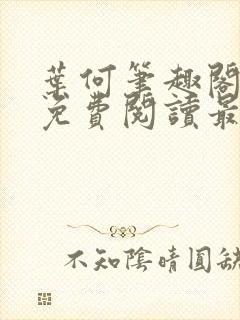 葉何筆趣閣
免費閱讀最
不知陰晴圓缺